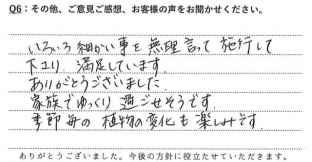 Q6：その他、ご意見ご感想、お客様の声をお聞かせください。
いろいろ細かい事を無理言って施行して
下さり、満足しています。
ありがとうございました。
家族でゆっくり過ごせそうです。
季節毎の植物の変化も楽しみです。
ありがとうございました。今後の方針に役立たせていただきます。